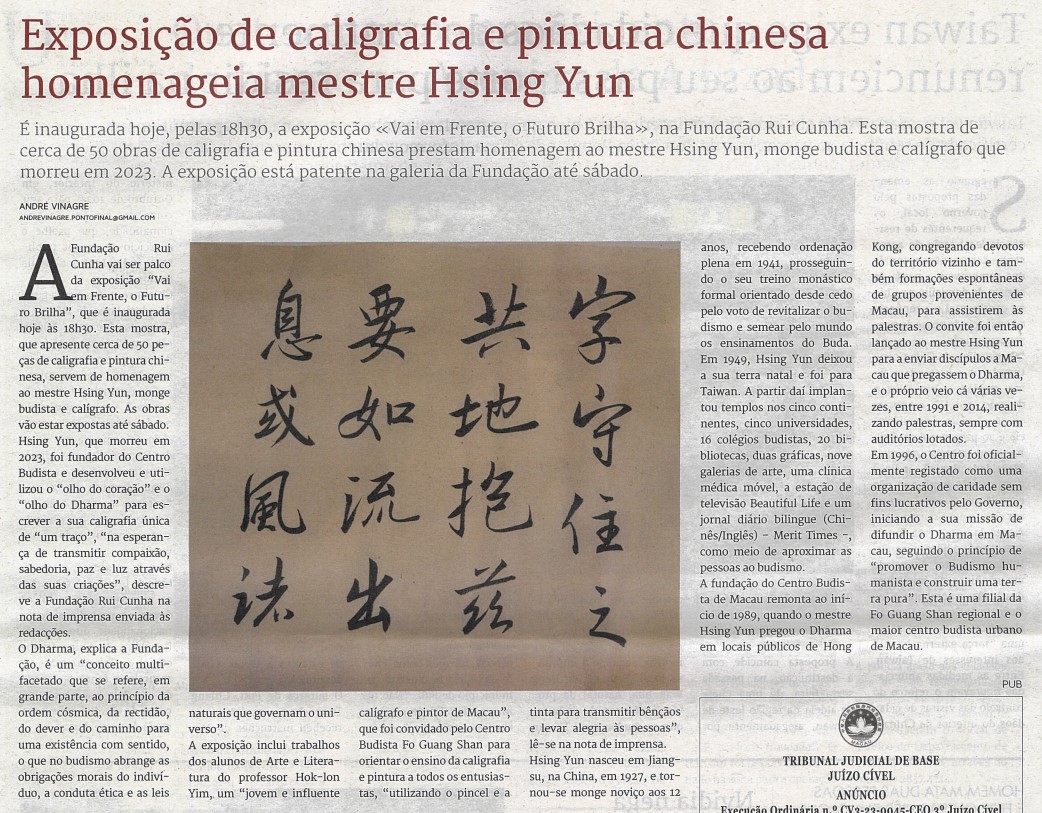 Exposição de caligrafia e pintura chinesa
homenageia mestre Hsing Yun
É inaugurada hoje, pelas 18h30, a exposição «Vai em Frente, o Futuro Brilha», na Fundação Rui Cunha. Esta mostra de
cerca de 50 obras de caligrafia e pintura chinesa prestam homenagem ao mestre Hsing Yun, monge budista e calígrafo que
morreu em 2023. A exposição está patente na galeria da Fundação até sábado.
ANDRÉ VINAGRE
ANDREVINAGRE.PONTOFINAL@GMAIL.COM
A Fundação Rui
Cunha vai ser palco
da exposição “Vai
em Frente, o Futu-
ro Brilha”, que é inaugurada
hoje às 18h30. Esta mostra,
que apresente cerca de 50 pe-
ças de caligrafia e pintura chi-
nesa, servem de homenagem
ao mestre Hsing Yun, monge
budista e calígrafo. As obras
vão estar expostas até sábado.
Hsing Yun, que morreu em
2023, foi fundador do Centro
Budista e desenvolveu e uti-
lizou o “olho do coração” e o
“olho do Dharma” para es-
crever a sua caligrafia única
de “um traço”, “na esperan-
ça de transmitir compaixão,
sabedoria, paz e luz através
das suas criações”, descre-
ve a Fundação Rui Cunha na
nota de imprensa enviada às
redacções.
O Dharma, explica a Funda-
ção, é um “conceito multi-
facetado que se refere, em
grande parte, ao princípio da
ordem cósmica, da rectidão,
do dever e do caminho para
uma existência com sentido,
o que no budismo abrange as
obrigações morais do indiví-
duo, a conduta ética e as leis
字守住之
共地抱茲
要如流出
息或風諸
naturais que governam o uni-
verso”.
A exposição inclui trabalhos
dos alunos de Arte e Litera-
tura do professor Hok-lon
Yim, um “jovem e influente
calígrafo e pintor de Macau”,
que foi convidado pelo Centro
Budista Fo Guang Shan para
orientar o ensino da caligrafia
e pintura a todos os entusias-
tas, “utilizando o pincel e a
tinta para transmitir bênçãos
e levar alegria às pessoas”,
lê-se na nota de imprensa.
Hsing Yun nasceu em Jiang-
su, na China, em 1927, e tor-
nou-se monge noviço aos 12
anos, recebendo ordenação
plena em 1941, prosseguin-
do o seu treino monástico
formal orientado desde cedo
pelo voto de revitalizar o bu-
dismo e semear pelo mundo
os ensinamentos do Buda.
Em 1949, Hsing Yun deixou
a sua terra natal e foi para
Taiwan. A partir daí implan-
tou templos nos cinco conti-
nentes, cinco universidades,
16 colégios budistas, 20 bi-
bliotecas, duas gráficas, nove
galerias de arte, uma clínica
médica móvel, a estação de
televisão Beautiful Life e um
jornal diário bilingue (Chi-
nês/Inglês) – Merit Times –,
como meio de aproximar as
pessoas ao budismo.
A fundação do Centro Budis-
ta de Macau remonta ao iní-
cio de 1989, quando o mestre
Hsing Yun pregou o Dharma
em locais públicos de Hong
Kong, congregando devotos
do território vizinho e tam-
bém formações espontâneas
de grupos provenientes de
Macau, para assistirem às
palestras. O convite foi então
lançado ao mestre Hsing Yun
para a enviar discípulos a Ma-
cau que pregassem o Dharma,
e o próprio veio cá várias ve-
zes, entre 1991 e 2014, reali-
zando palestras, sempre com
auditórios lotados.
Em 1996, o Centro foi oficial-
mente registado como uma
organização de caridade sem
fins lucrativos pelo Governo,
iniciando a sua missão de
difundir o Dharma em Ma-
cau, seguindo o princípio de
“promover o Budismo hu-
manista e construir uma ter-
ra pura”. Esta é uma filial da
Fo Guang Shan regional e o
maior centro budista urbano
de Macau.
PUB
TRIBUNAL JUDICIAL DE BASE
JUÍZO CÍVEL
ANÚNCIO
Execução Ordinária n.º CV3-23-0045-CEO 3º Juízo Cível